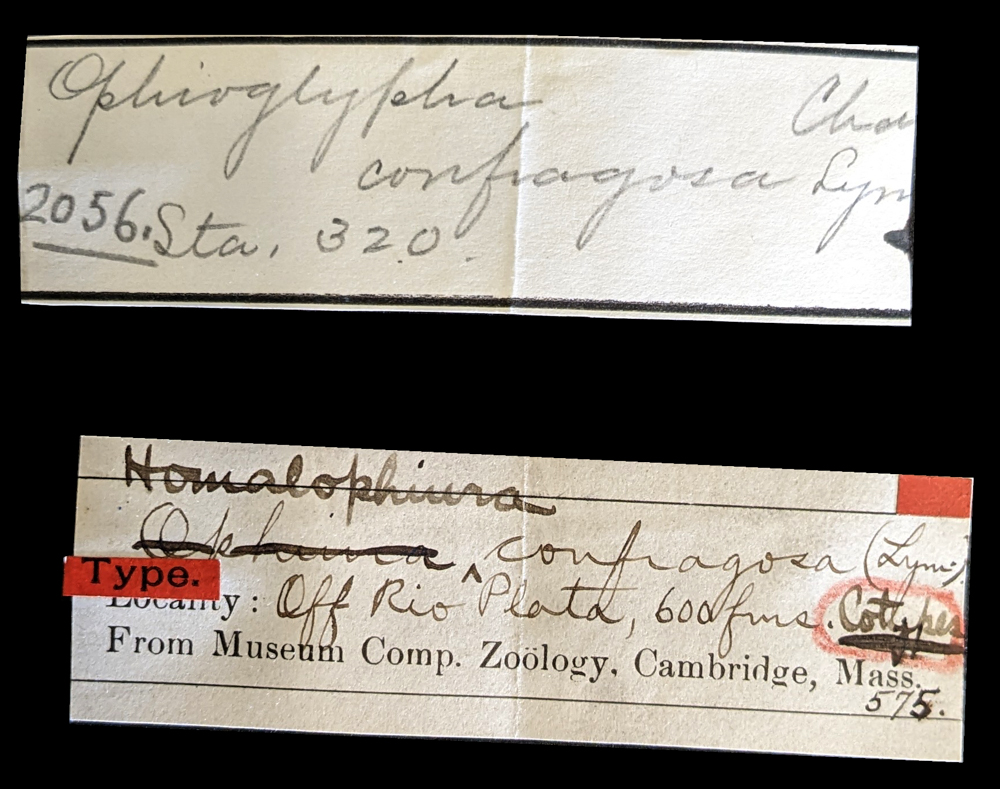 Ophioglypha Cha
confragosa Lym
2056. Sta. 320.
Homalophiura
Ophiura ^ confragosa (Lym.)
Type.
Locality: Off Rio Plata, 600 fms. Cotypes
From Museum Comp. Zoölogy, Cambridge, Mass.
575.